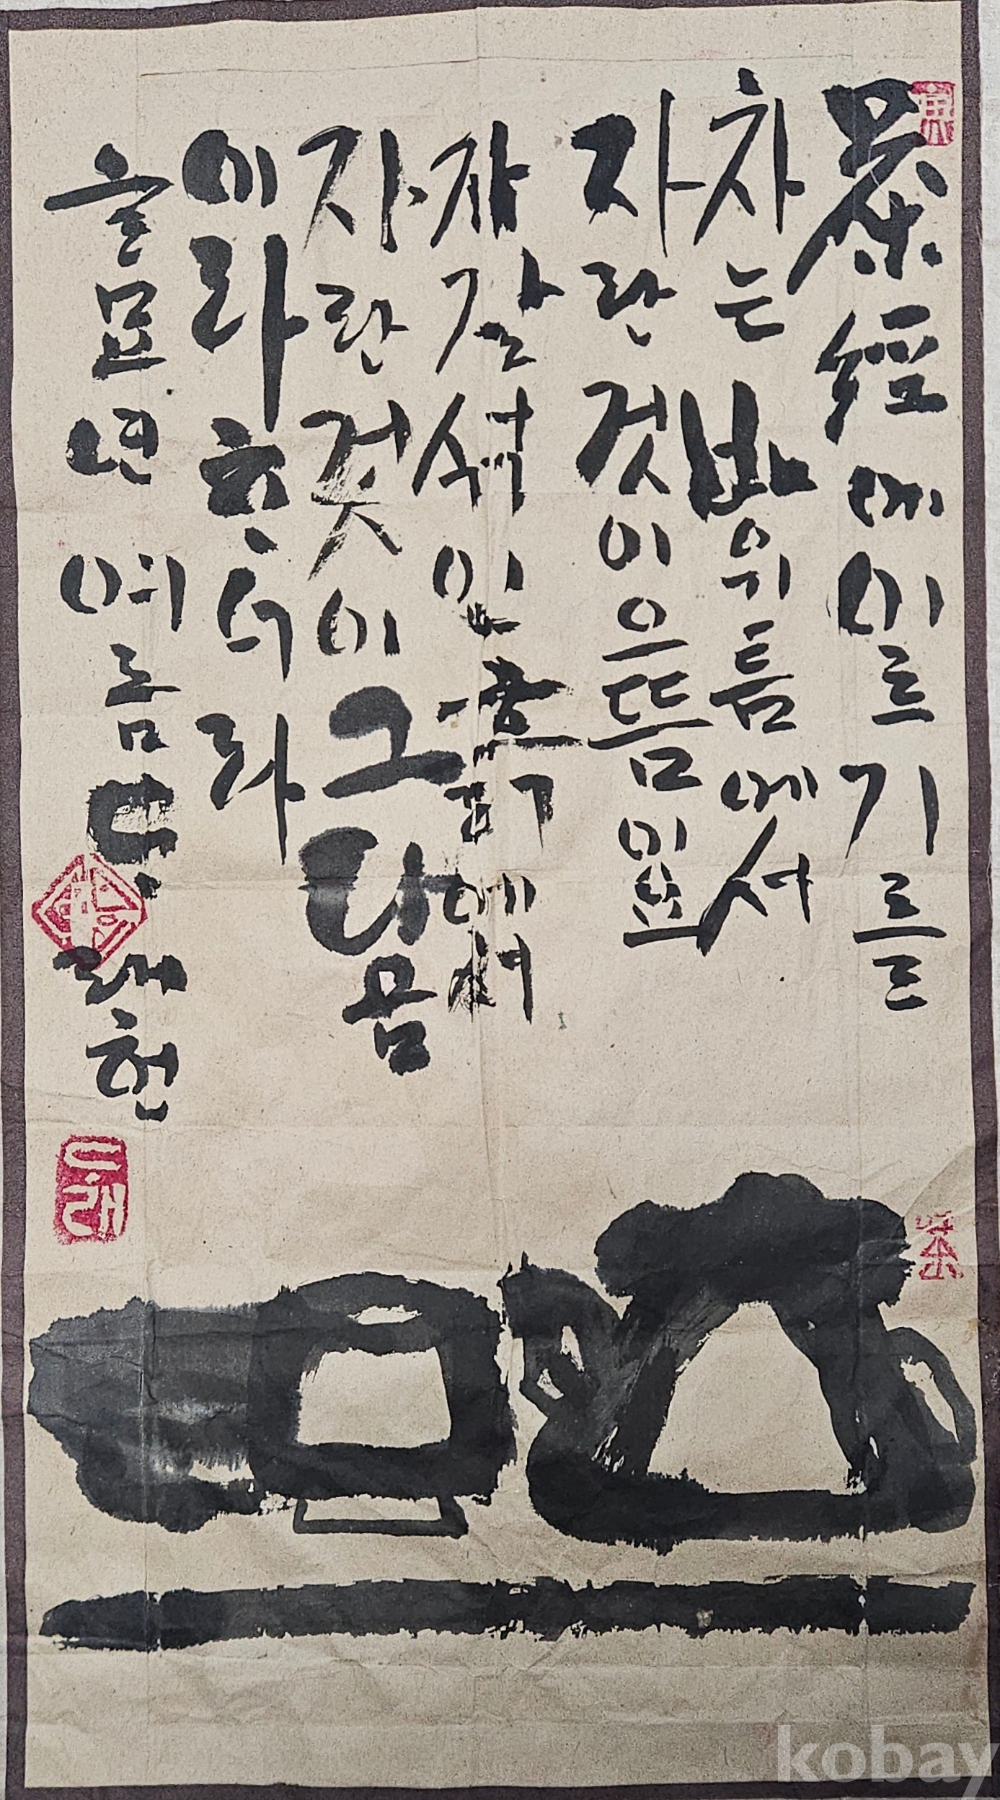 茶經에이르기를
차는 바위틈에서
자란 것이 으뜸이요
자갈 섞인 흙에서
자란 것이 그 다음
이라
을묘년 여름 ᄃᆞ래헌
ᄃᆞ래
kobay